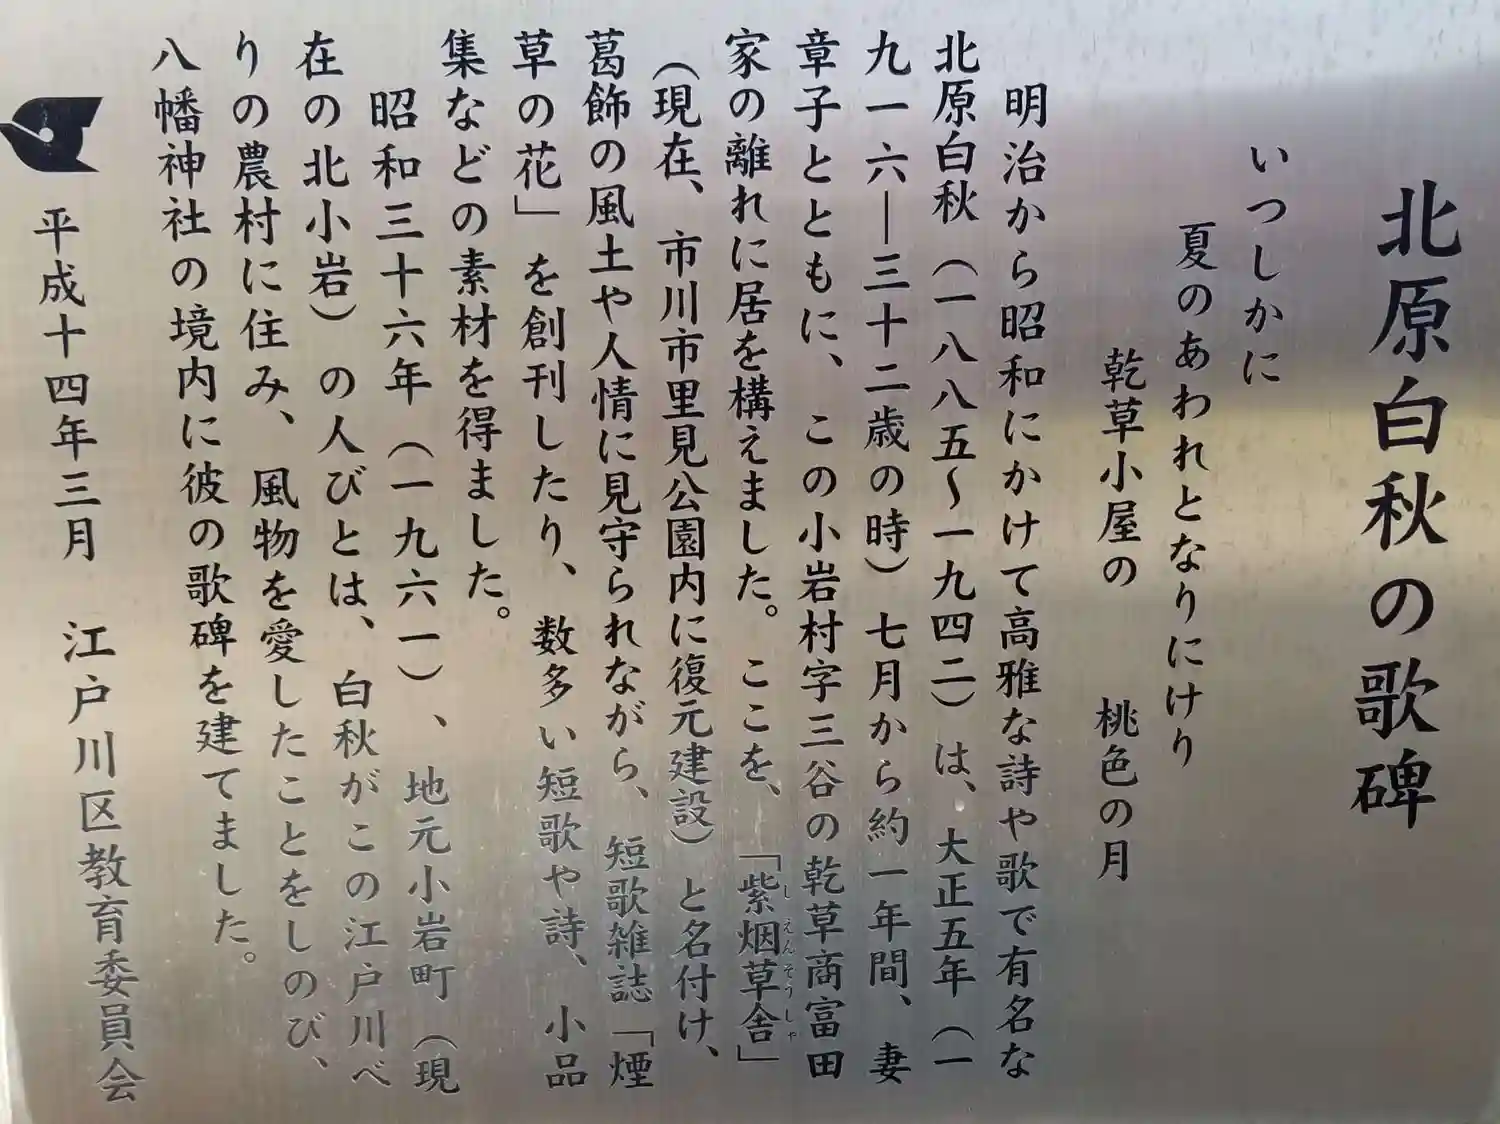 北原白秋の歌碑
いつしかに
夏のあわれとなりにけり
乾草小屋の　桃色の月
明治から昭和にかけて高雅な詩や歌で有名な
北原白秋（一八八五～一九四二）は、大正五年（一
九一六―三十二歳の時）七月から約一年間、妻
章子とともに、この小岩村字三谷の乾草商富田
家の離れに居を構えました。ここを、「紫烟草舎」
しえんそうしゃ
（現在、市川市里見公園内に復元建設）と名付け、
葛飾の風土や人情に見守られながら、短歌雑誌「煙
草の花」を創刊したり、数多い短歌や詩、小品
集などの素材を得ました。
昭和三十六年（一九六一）、地元小岩町（現
在の北小岩）の人びとは、白秋がこの江戸川べ
りの農村に住み、風物を愛したことをしのび、
八幡神社の境内に彼の歌碑を建てました。
平成十四年三月　江戸川区教育委員会